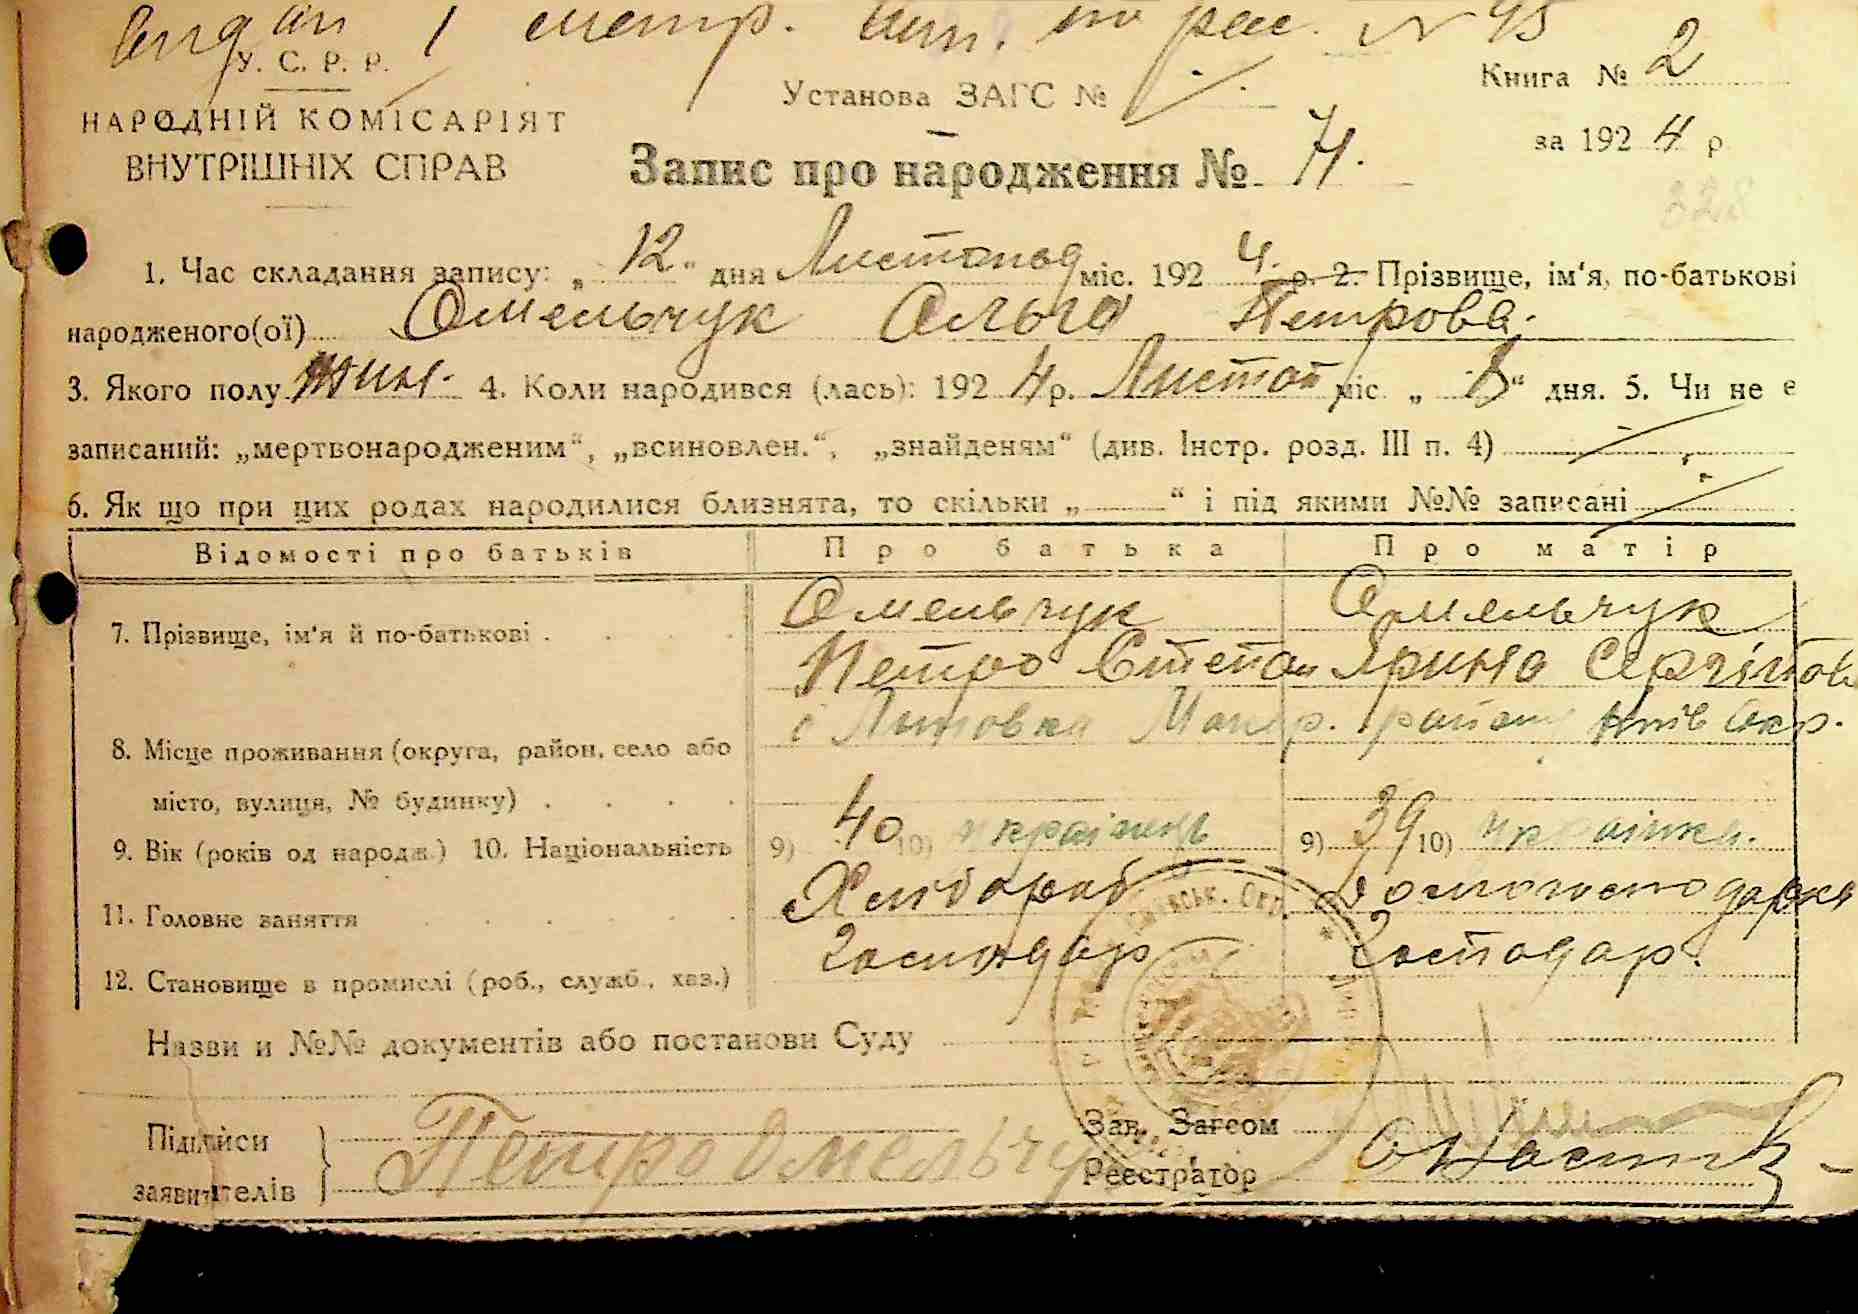 Видан 1 метр. вип. по рас. N 45
У. С. Р. Р.
НАРОДНІЙ КОМІСАРІЯТ
ВНУТРІШНІХ СПРАВ
Установа ЗАГС №
Книга № 2
за 1924 р
Запис про народження № 74.
328
1. Час складання запису: „12" дня Листопад міс. 1924. р. 2. Прізвище, ім'я, по-батькові
народженого(ої) Омельчук Ольга Петрова.
3. Якого полу жин. 4. Коли народився (лась): 1924 р. Листоп міс „8" дня. 5. Чи не є
записаний: „мертвонародженим", „всиновлен.", „знайденям" (див. Інстр. розд. III п. 4)
6. Як що при цих родах народилися близнята, то скільки „ " і під якими №№ записані
Відомості про батьків Про батька Про матір
7. Прізвище, ім'я й по-батькові . . . . Омельчук Омельчук
Петро Степан Ярина Сергіїов
8. Місце проживання (округа, район, село або
с Литовка Мак р. району Київ Окр.
місто, вулиця, № будинку) . . . .
9. Вік (років од народж.) 10. Національність 9) 40 10) українець 9) 39 10) українка.
11. Головне заняття Хлібороб домогосподарка
12. Становище в промислі (роб., служб., хаз.) Господар Господар.
Назви и №№ документів або постанови Суду
Підписи
заявителів
Петро Омельчу
Зав. Загсом
Реєстратор